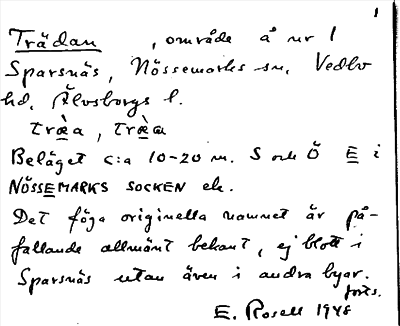 1
Trädan , område å nr 1
Sparsnäs, Nössemarks sn, Vedbo
hd, Älvsborgs l.
träa, träa
Beläget c:a 10-20 m. S och Ö E i
NÖSSEMARKS SOCKEN ek.
Det föga originella namnet är på-
fallande allmänt bekant, ej blott i
Sparsnäs utan även i andra byar.
forts.
E. Rosell 1948